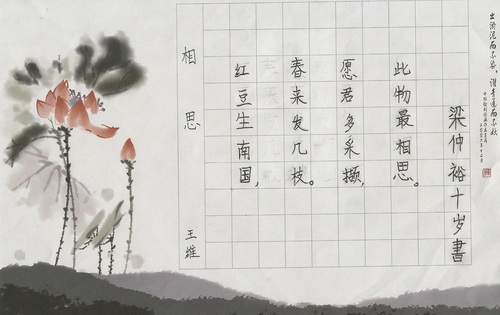 相思 王维
红豆生南国,
春来发几枝。
愿君多采撷,
此物最相思。
梁仲裕十岁書
出淤泥而不染，濯清涟而不妖